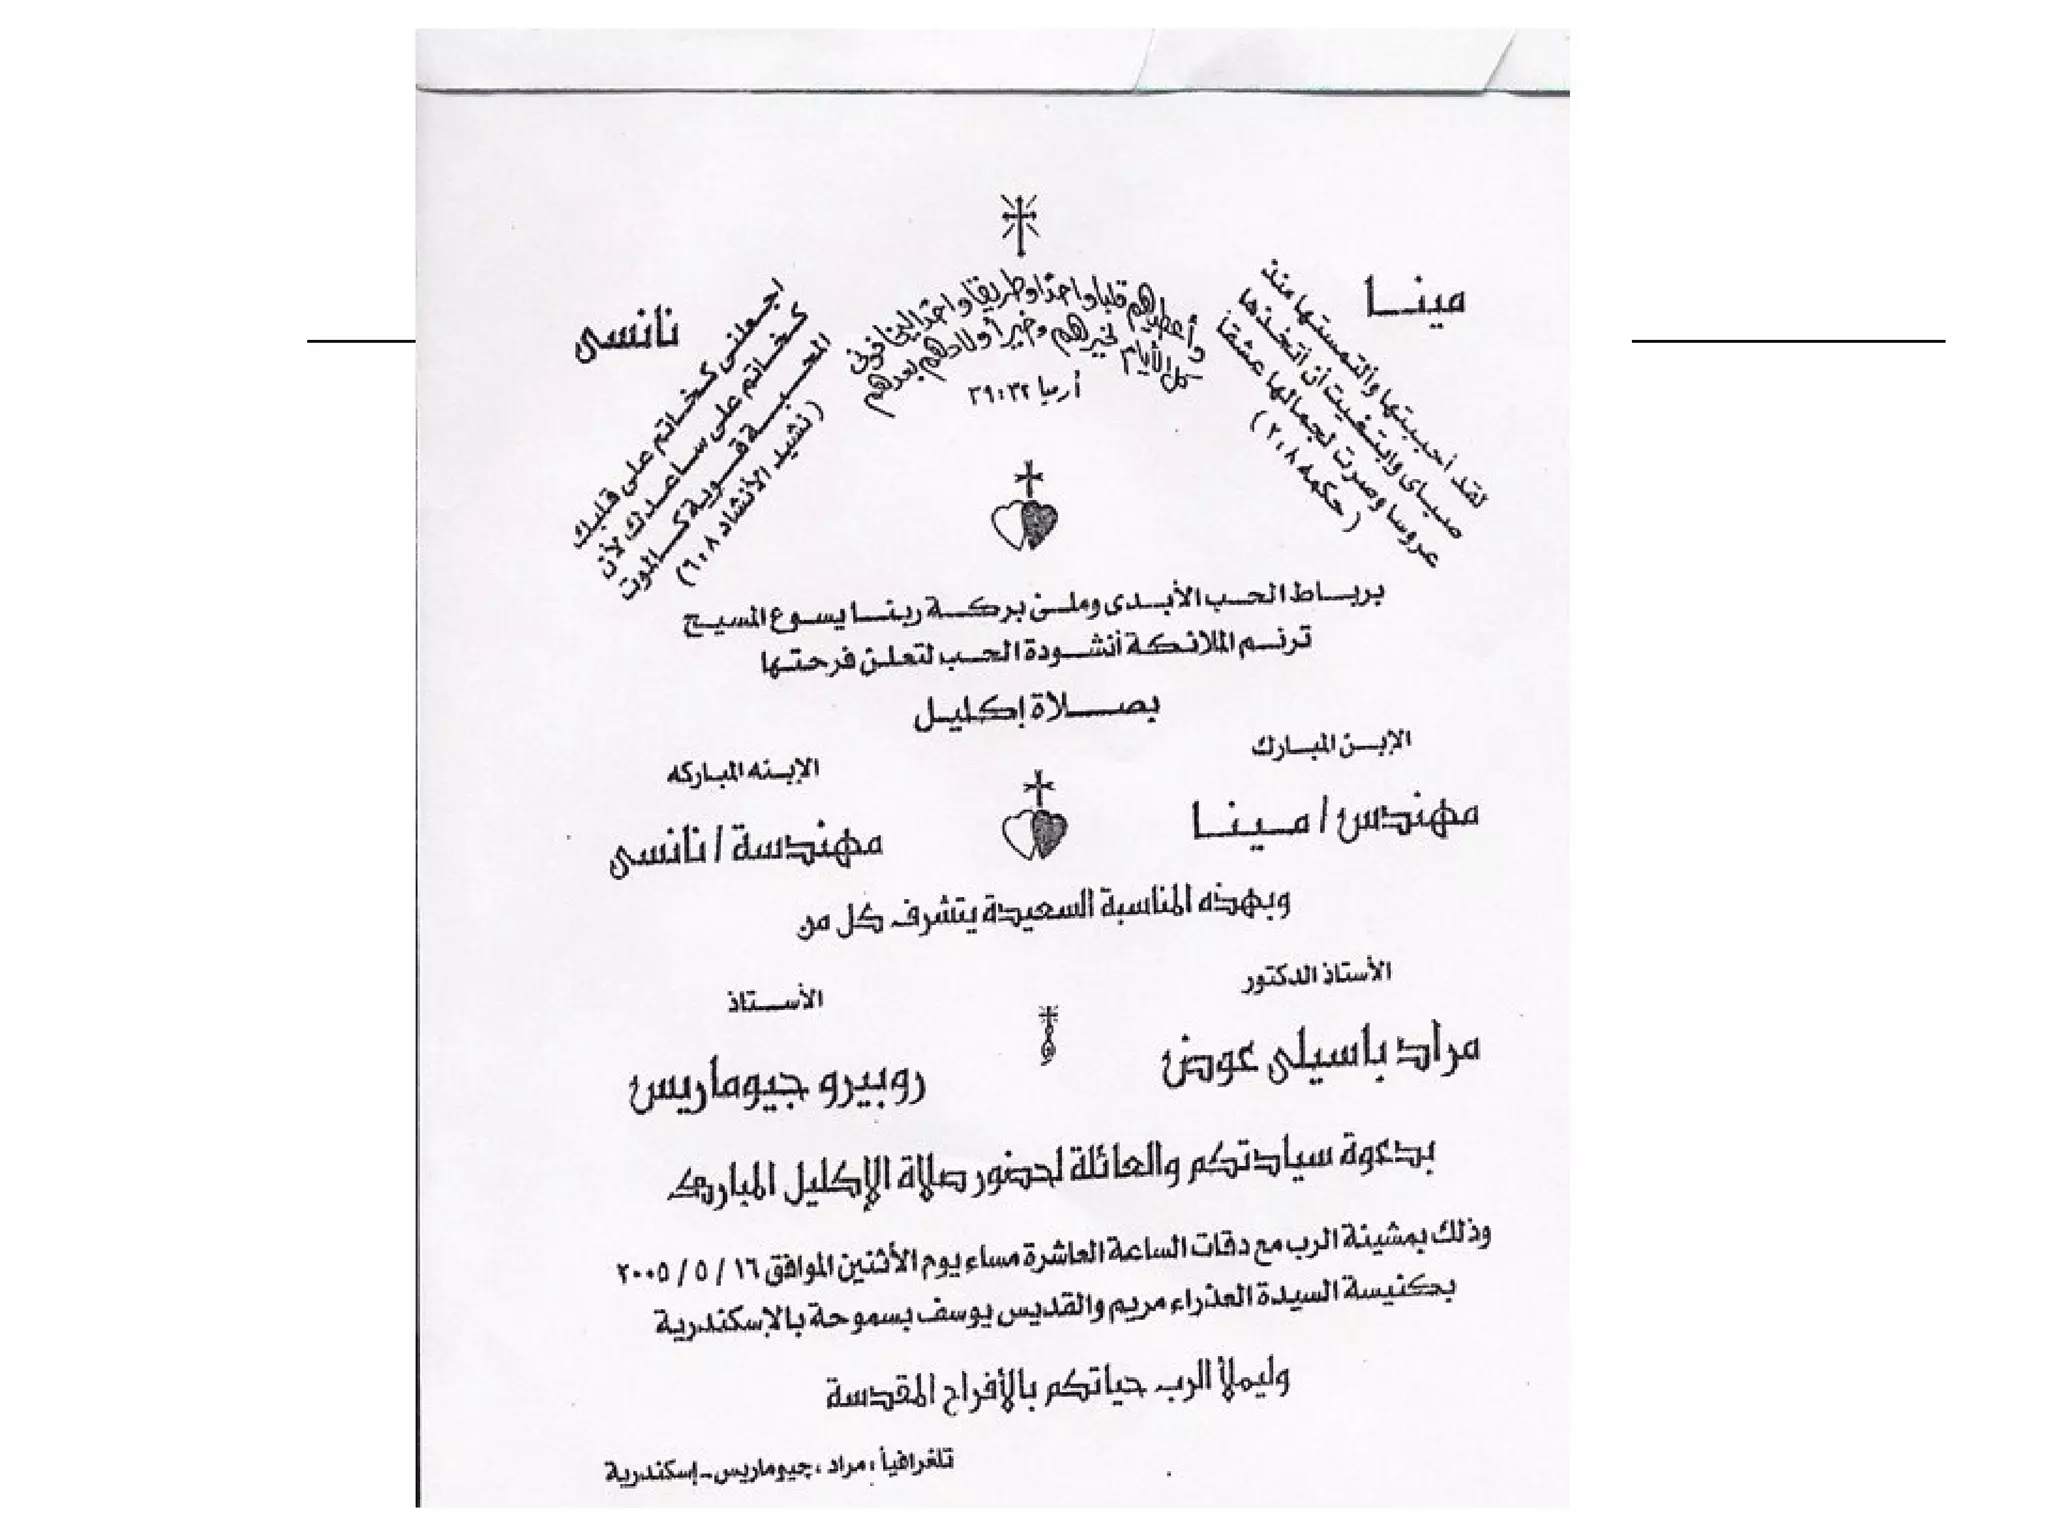 مينـــا
نانسى
وأعطيهم قلبا واحدا وطريقا واحدا ليخافونى
كل الأيام لخيرهم وخير أولادهم بعدهم
أرميا ٣٩:٣٢
لقد أحببتها وألتمستها منذ
صباى وابتغيت أن أتخذها
عروسا وصرت لجمالها عشقا
(حكمه ٢:٨)
اجعلنى كخاتم على قلبك
كخاتم على ساعدك لأن
المحبة قوية كالموت
(نشيد الأنشاد ٦:٨)
برباط الحب الأبدى وملئ بركة ربنا يسوع المسيح
ترنم الملائكة أنشودة الحب لتعلن فرحتها
بصلاة إكليل
الإبن المبارك
الإبنه المباركه
مهندس / مينا
مهندسة / نانسى
وبهذه المناسبة السعيدة يتشرف كل من
الأستاذ الدكتور
الأستاذ
مراد باسيلى عوض
روبيرو جيوماريس
بدعوة سيادتكم والعائلة لحضور صلاة الإكليل المبارك
وذلك بمشيئة الرب مع دقات الساعة العاشرة مساء يوم الأثنين الموافق ١٦ / ٥ / ٢٠٠٥
بكنيسة السيدة العذراء مريم والقديس يوسف بسموحة بالإسكندرية
وليملأ الرب حياتكم بالأفراح المقدسة
تلغرافياً : مراد ، جيوماريس - إسكندرية